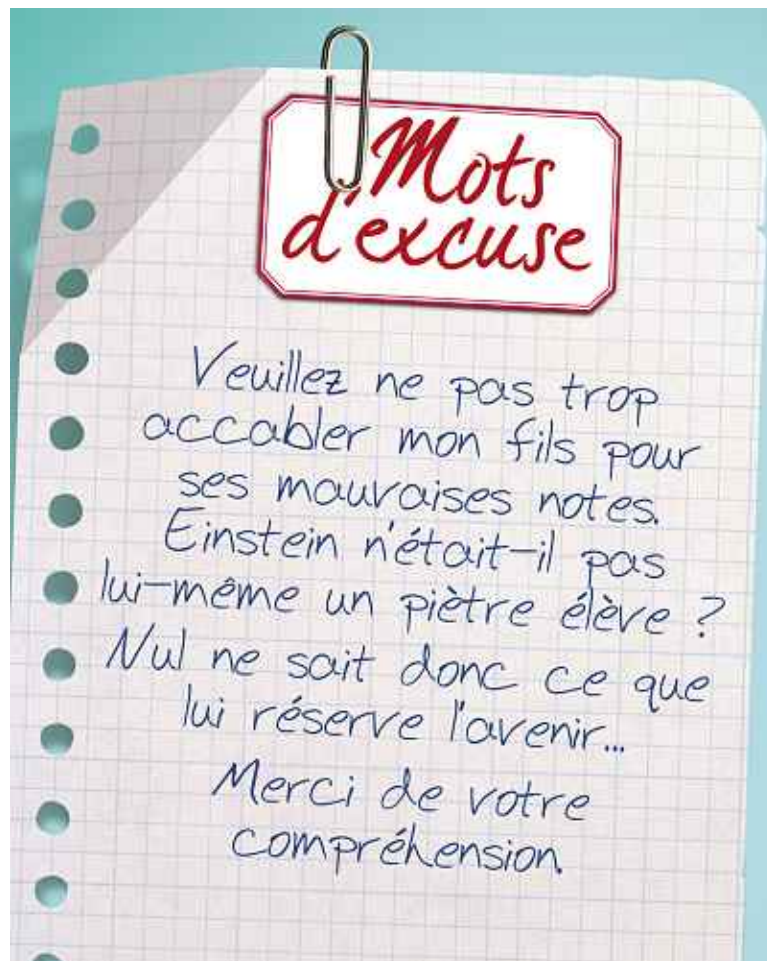 Mots
d'excuse
Veuillez ne pas trop
accabler mon fils pour
ses mauvaises notes.
Einstein n'était-il pas
lui-même un piètre élève ?
Nul ne sait donc ce que
lui réserve l'avenir...
Merci de votre
compréhension.